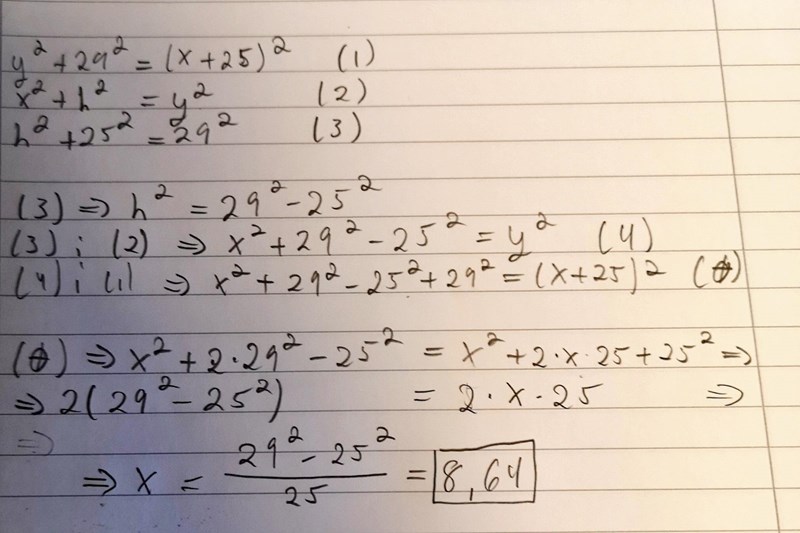 y² + 29² = (x + 25)² (1)
x² + h² = y² (2)
h² + 25² = 29² (3)
(3) ⇒ h² = 29² - 25²
(3) i (2) ⇒ x² + 29² - 25² = y² (4)
(4) i (1) ⇒ x² + 29² - 25² + 29² = (x + 25)² (⊕)
(⊕) ⇒ x² + 2·29² - 25² = x² + 2·x·25 + 25² ⇒
⇒ 2(29² - 25²) = 2·x·25 ⇒
⇒
⇒ x = (29² - 25²)/25 = 8,64